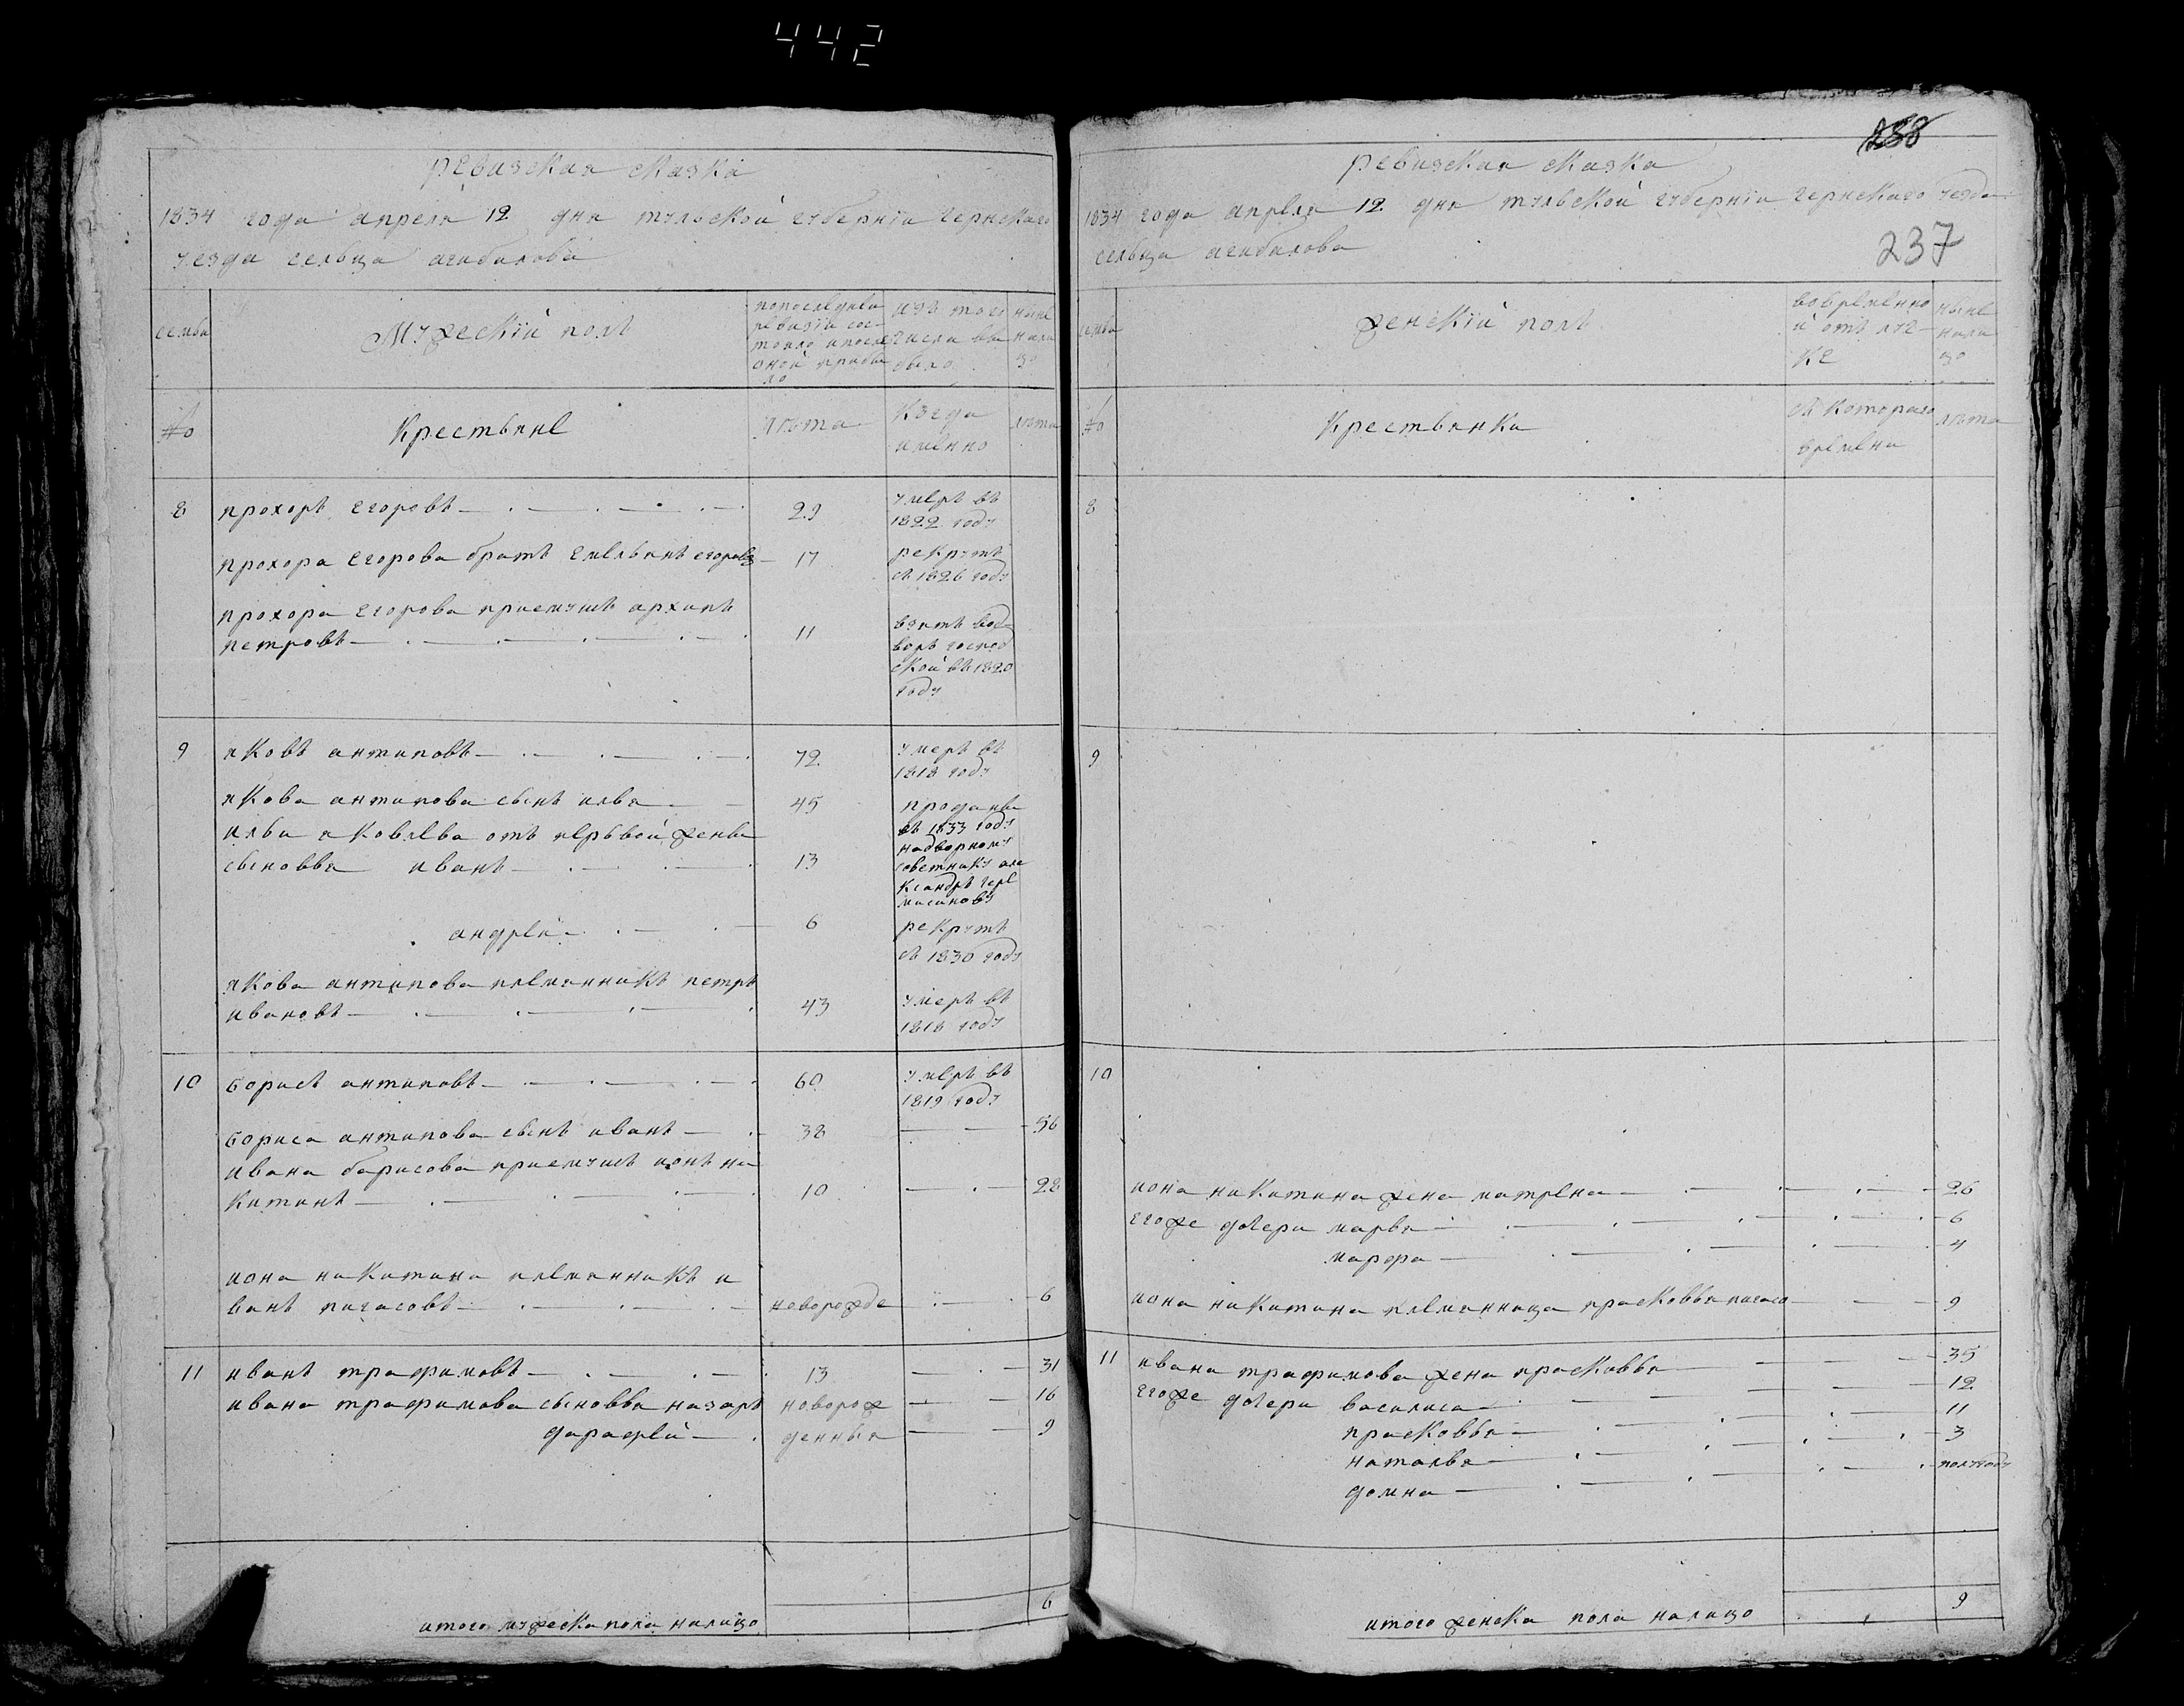 442
ревизская сказка
1834 года апреля 12 дня тульской губернїи чернскаго
уезда сельца агибалова
семьи
Мужескїй полъ
попоследней
ревизїи сос-
тояло ипосле
оной прибы
ло
изъ того
числа вы
было
ныне
нали
цо
№
Крестьяне
лѣта
Когда
именно
лѣта
8 прохоръ егоровъ 29 умеръ въ
1822 году
прохора егорова братъ емельянъ егоровъ 17 рекрутъ
съ 1826 году
прохора егорова приемушъ архипъ
петровъ 11 взятъ вод
воръ господ
ской въ 1820
году
9 яковъ антиповъ 72 умеръ въ
1818 году
якова антипова сынъ илья 45 проданы
въ 1833 году
ильи яковлева отъ первой жены
сыновья иванъ 13 надворному
советнику але
ксандръ чере
мисинову
андрей 6 рекрутъ
съ 1830 году
якова антипова племянникъ петръ
ивановъ 43 умеръ въ
1818 году
10 борисъ антиповъ 60 умеръ въ
1819 году
бориса антипова сынъ иванъ 38 56
ивана барисова приемушъ ионъ ни
китинъ 10 28
иона никитина племянникъ и
ванъ пигасовъ новорожде 6
11 иванъ трафимовъ 13 31
ивана трафимова сыновья назаръ новорож 16
дарафей денныя 9
итого мужеска пола налицо 6
258
ревизская сказка
1834 года апреля 12 дня тульской губернїи чернскаго уезда
сельца агибалова
237
семьи
женскїй полъ
вовременно
й отъ луч-
ке
ныне
нали
цо
№
Крестьянки
съ котораго
времени
лѣта
8
9
10
иона никитина жена матрена 26
егоже дочери марья 6
марфа 4
иона никитина племянница прасковья пигасо 9
11 ивана трафимова жена прасковья 35
егоже дочери василиса 12
прасковья 11
наталья 3
домна полугоду
итого женска пола налицо 9